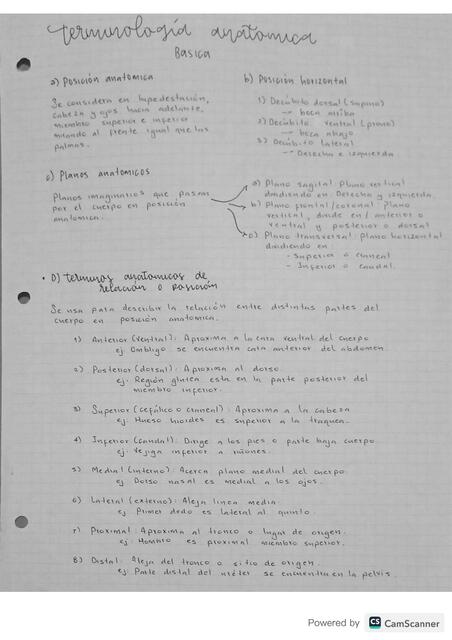 terminología anatomica
Basica
a) Posición anatomica
Se considera en bipedestación,
cabeza y ojos hacia adelante,
miembro superior e inferior
mirando al frente igual que las
palmas.
b) Posición horizontal
1) Decúbito dorsal (supino)
→ boca arriba
2) Decúbito ventral (prono)
→ boca abajo
3) Decúbito lateral
→ Derecha e izquierda.
c) Planos anatomicos
Planos imaginarios que pasan
por el cuerpo en posición
anatomica.
a) Plano sagital: Plano vertical
dividiendo en: Derecha y izquierda.
b) Plano frontal/coronal: Plano
vertical, divide en / anterior o
ventral y posterior o dorsal
c) Plano transversal: Plano horizontal
dividiendo en:
- Superior o craneal
- Inferior o caudal.
• D) terminos anatomicos de
relación o posición
Se usa para describir la relación entre distintas partes del
cuerpo en posición anatomica.
1) Anterior (ventral): Aproxima a la cara ventral del cuerpo
ej: Ombligo se encuentra cara anterior del abdomen.
2) Posterior (dorsal): Aproxima al dorso.
ej: Región glutea esta en la parte posterior del
miembro inferior.
3) Superior (cefálico o craneal): Aproxima a la cabeza
ej: Hueso hioides es superior a la traquea.
4) Inferior (caudal): Dirige a los pies o parte baja cuerpo.
ej: Vejiga inferior a riñones.
5) Medial (interno): Acerca plano medial del cuerpo
ej: Dorso nasal es medial a los ojos.
6) Lateral (externo): Aleja linea media.
ej: Primer dedo es lateral al quinto.
7) Proximal: Aproxima al tronco o lugar de origen.
ej: Hombro es proximal miembro superior.
8) Distal: Aleja del tronco o sitio de origen.
ej: Parte distal del uréter se encuentra en la pelvis.
Powered by CS CamScanner